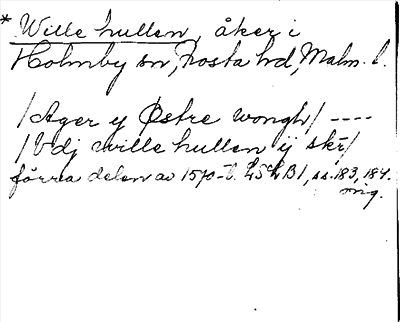 * Wille hullen, åker i
Holmby sn, Frosta hd, Malm. l.
/Ager y Østre wongh/ ----
/Udj wille hullen ij skr/
förra delen av 1570-t. LSLB1, ss. 183, 184.
mig.